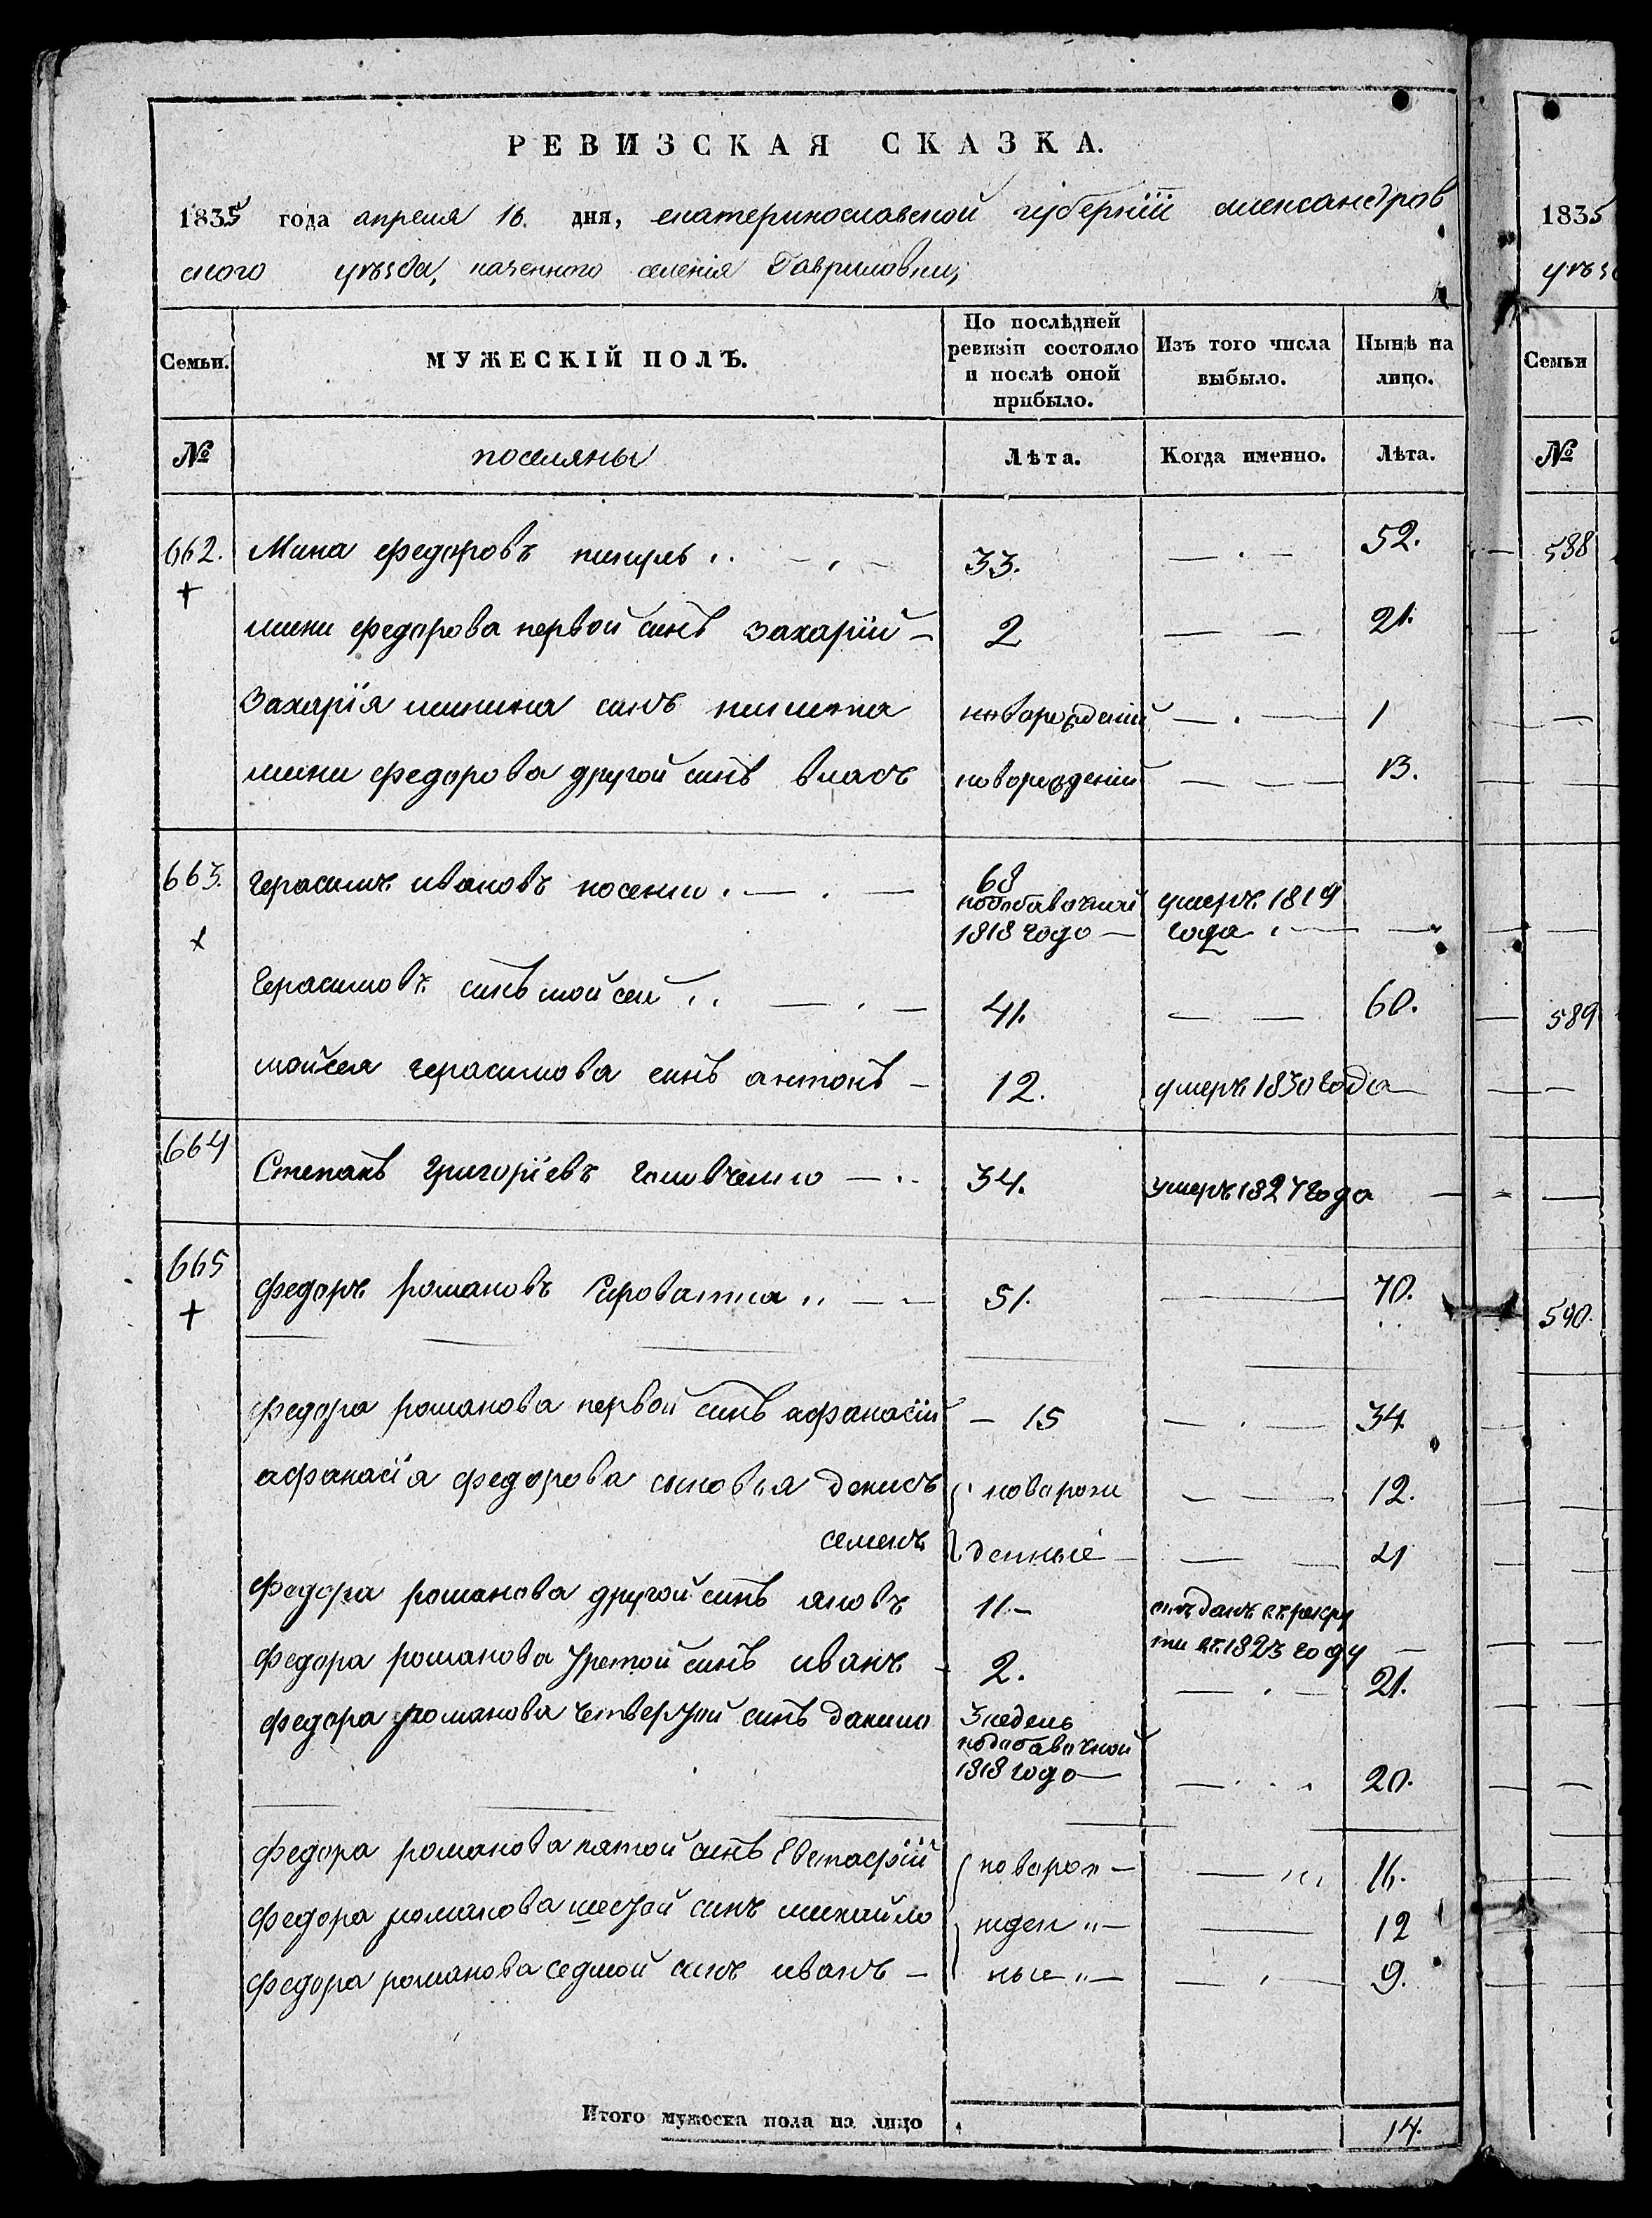 РЕВИЗСКАЯ СКАЗКА.
1835 года апреля 16. дня, екатеринославской губернїи александров
ского уѣзда, казенного селенїя Гавриловки,
Семьи. МУЖЕСКІЙ ПОЛЪ. По послѣдней ревизіи состояло и послѣ оной прибыло. Изъ того числа выбыло. Нынѣ на лицо.
№ поселяны Лѣта. Когда именно. Лѣта.
662. Мина федоровъ 33. 52.
мини федорова первой синъ захарїй 2 21.
захарїя минина синъ никита новорождений 1
мини федорова другой синъ власъ новорожденій 13.
663. герасимъ ивановъ носенко 68 подобавочной 1818 годо умеръ 1819 года
герасимовъ синъ мойсей 41. 60.
мойсея герасимова синъ антонъ 12. умеръ 1830 года
664 Степанъ григорїевъ головченко 34. умеръ 1827 года
665 федоръ романовъ Сироватка 51. 70.
федора романова первой синъ афанасїй 15 34.
афанасїя федорова сыновья денисъ новорож 12.
семенъ денныѐ 21
федора романова другой синъ яковъ 11. отъданъ въ рекру
ти въ 1823 году
федора романова третой синъ иванъ 2. 21.
федора романова четвертий синъ данило 3 недель
подобавочной
1818 годо 20.
федора романова пятой синъ Евстафїй новорож 16.
федора романова шестой синъ михайло жден 12
федора романова седмой синъ иванъ ные 9.
Итого мужеска пола на лицо 14.
1835
уѣз
Семьи
№
588
589
590.